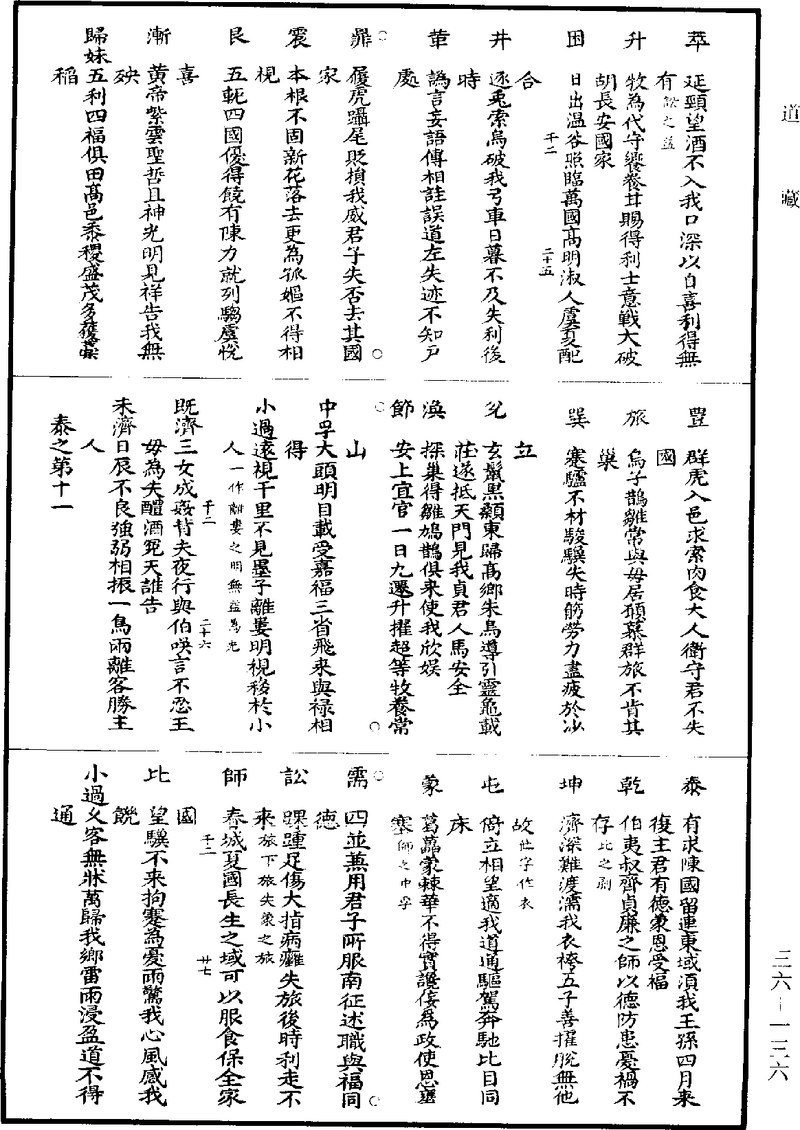 道藏
萃　延頸望酒不入我口深以自喜利得無
有訟之益
升　牧為代守饗養甘賜得利士意戰大破
胡長安國家
困　日出溫谷照臨萬國高明淑人虞夏配
合
千二
二十五
井　逐兎索烏破我弓車日暮不及失利後
時
革　譌言妄語傳相詿誤道左失迹不知戸
處
鼎　履虎躡尾貶損我威君子失否去其國
家
震　本根不固新花落去更為孤嫗不得相
視
艮　五軛四國優得饒有陳力就列騶虞悅
喜
漸　黄帝紫雲聖哲且神光明見祥告我無
殃
歸妹五利四福俱田高邑黍稷盛茂多獲藁
稲
豐　群虎入邑求索肉食大人衛守君不失
國
旅　烏子鵲雛常與毋居願慕群旅不肯其
巢
巽　蹇驢不材駿驥失時筋勞力盡疲於沙
立
兊　玄鬣黒顙東歸高鄉朱鳥導引靈龜載
莊遂抵天門見我貞君人馬安全
渙　探巢得雛鳩鵲俱来使我欣娱
節　安上宜官一日九遷升擢超等牧養常
山
中孚大頭明目載受嘉福三省飛来與禄相
得
小過遠視千里不見墨子離婁明視稊於小
人一作離婁之明無益為光
既濟三女成姦背夫夜行與伯咲言不忍王
毋為失醴酒冤天誰告
千二
二十六
未濟日辰不良強弱相振一鳥兩離客勝主
人
泰之第十一
泰　有求陳國留連東域湏我王孫四月来
復主君有德蒙恩受福
乾　伯夷叔齊貞廉之師以德防患憂禍不
存比之剥
坤　濟深難渡濡我衣袴五子善擢脫無他
故他字作衣
屯　倚立相望適我道通驅駕奔馳比目同
床
蒙　葛藟蒙棘華不得實讒佞為政使恩壅
塞師之中孚
需　四並兼用君子所服南征述職與福同
德
訟　踝踵足傷大指病癰失旅後時利走不
来旅下旅失衆之旅
師　春城夏國長生之域可以服食保全家
國
千二
廿七
比　望驥不来拘蹇為憂雨驚我心風感我
饑
小過乂客無牀萬歸我鄉雷雨浸盈道不得
通
三六－一三六